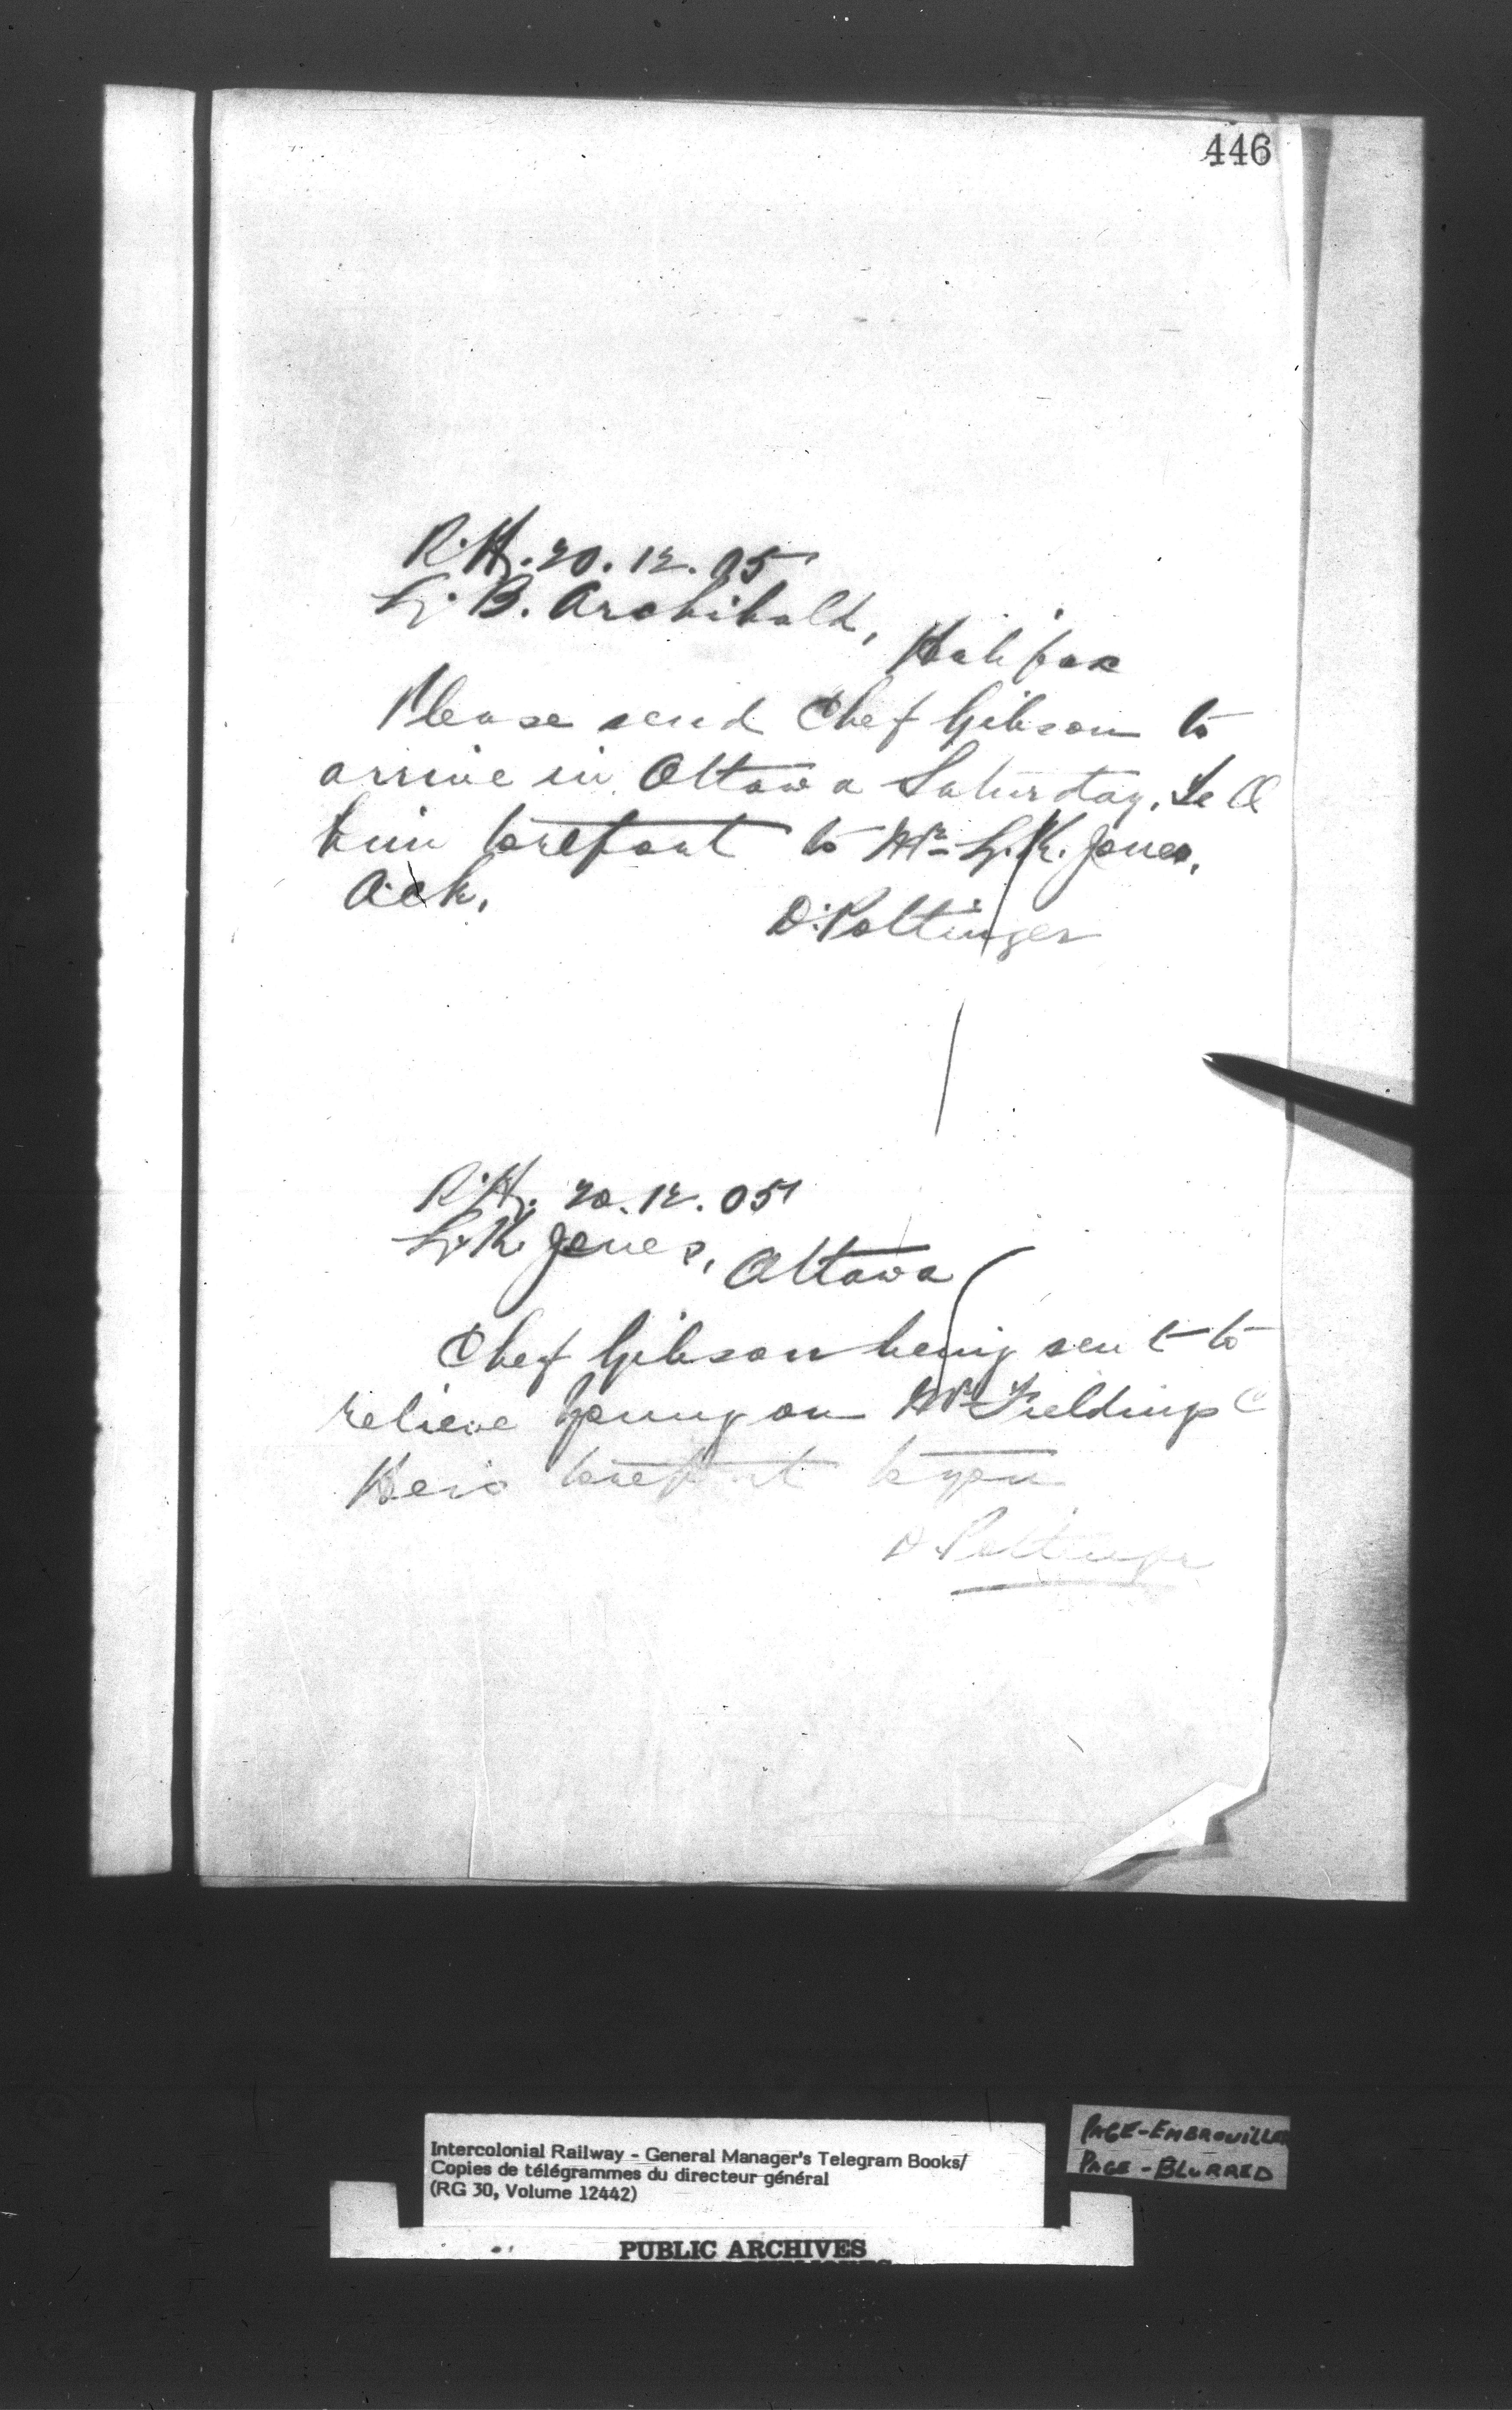 446
R.H. 20.12.05
L. B. Archibald,
Halifax
Please send Chef Gibson to
arrive in Ottawa Saturday. Tell
him to report to Mr. L. K. Jones.
Ack.
D. Pottinger
R.H. 20.12.05
L. K. Jones,
Ottawa
Chef Gibson being sent to
relieve Young on Mr. Fieldings C
He is to report to you
D. Pottinger
Intercolonial Railway - General Manager's Telegram Books/
Copies de télégrammes du directeur général
(RG 30, Volume 12442)
PAGE-EMBROUILLER
PAGE-BLURRED
PUBLIC ARCHIVES